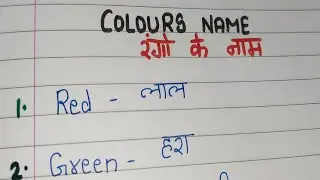 COLOURS NAME
रंगो के नाम
1. Red - लाल
2. Green - हरा